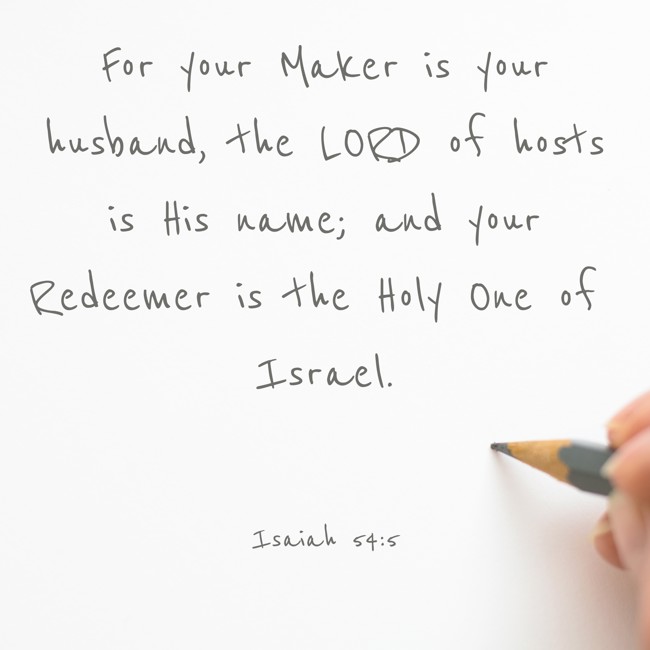 For your Maker is your
husband, the LORD of hosts
is His name; and your
Redeemer is the Holy One of
Israel.
Isaiah 54:5